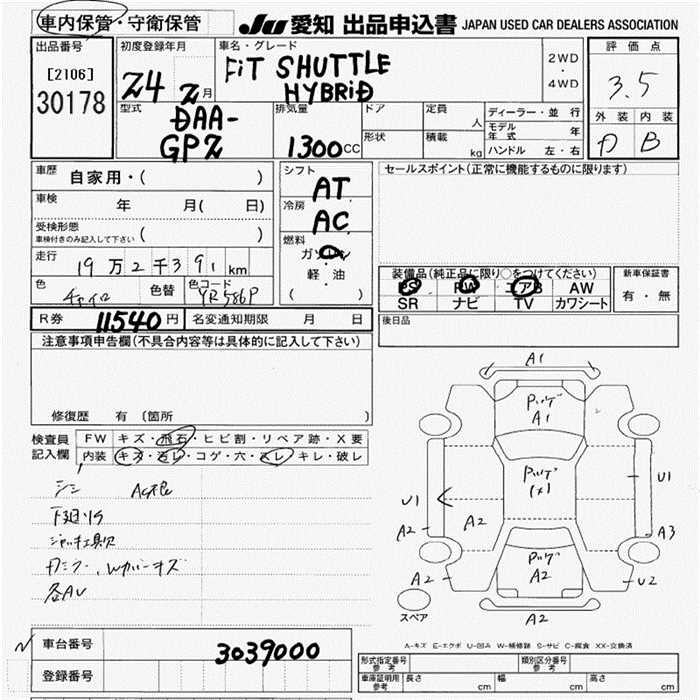 車内保管・守衛保管
JU 愛知 出品申込書 JAPAN USED CAR DEALERS ASSOCIATION
出品番号
[2106]
30178
初度登録年月
24 2月
車名・グレード
FiT SHUTTLE
HYBRiD
2WD
・
4WD
評価点
3.5
外装 内装
B
型式
DAA-
GP2
排気量
1300cc
ドア
形状
定員
人
積載
kg
ディーラー・並行
モデル年式 年
ハンドル 左・右
車歴
自家用・( )
車検
年 月( 日)
受検形態
車検付きのみ記入して下さい ( )
走行
19万2千391km
色
チャイロ
色替
色コード
YR586P
シフト
AT
冷房
AC
燃料
ガソリン
・
軽・油
( )
セールスポイント(正常に機能するものに限ります)
装備品(純正品に限り○をつけてください)
PS PW エアB AW
SR ナビ TV カワシート
新車保証書
有・無
後日品
R券 11540円 名変通知期限 月 日
注意事項申告欄(不具合内容等は具体的に記入して下さい)
修復歴 有 (箇所 )
検査員
記入欄
FW キズ・飛石・ヒビ割・リペア跡・X要
内装 キズ・汚レ・コゲ・穴・スレ・キレ・破レ
下廻りサ
各AU
A1
A1
U1
A2
A2
A2
U1
A3
U2
A2
A2
スペア
A-キズ E-エクボ U-凹み W-補修跡 S-サビ C-腐食 XX-交換済
車台番号
3039000
登録番号
形式指定番号
参考
類別区分番号
参考
車庫証明用
参考
長さ cm 幅 cm 高さ cm